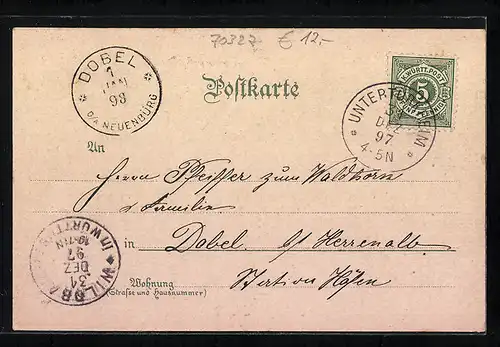 70327 € 12.-
DOBEL
1
JAN
98
O/A NEUENBÜRG
Postkarte
K. WÜRTT. POST
5
FÜNF PFENNIG
UNTERTÜRKHEIM
DEZ
97
4-5N
An
Herrn Pfeiffer zum Waldhorn
& Familie
in Dobel b/ Herrenalb
Station Höfen
Wohnung
(Straße und Hausnummer)
WILDBAD
31
DEZ
97
10-11N
IN WÜRTT.